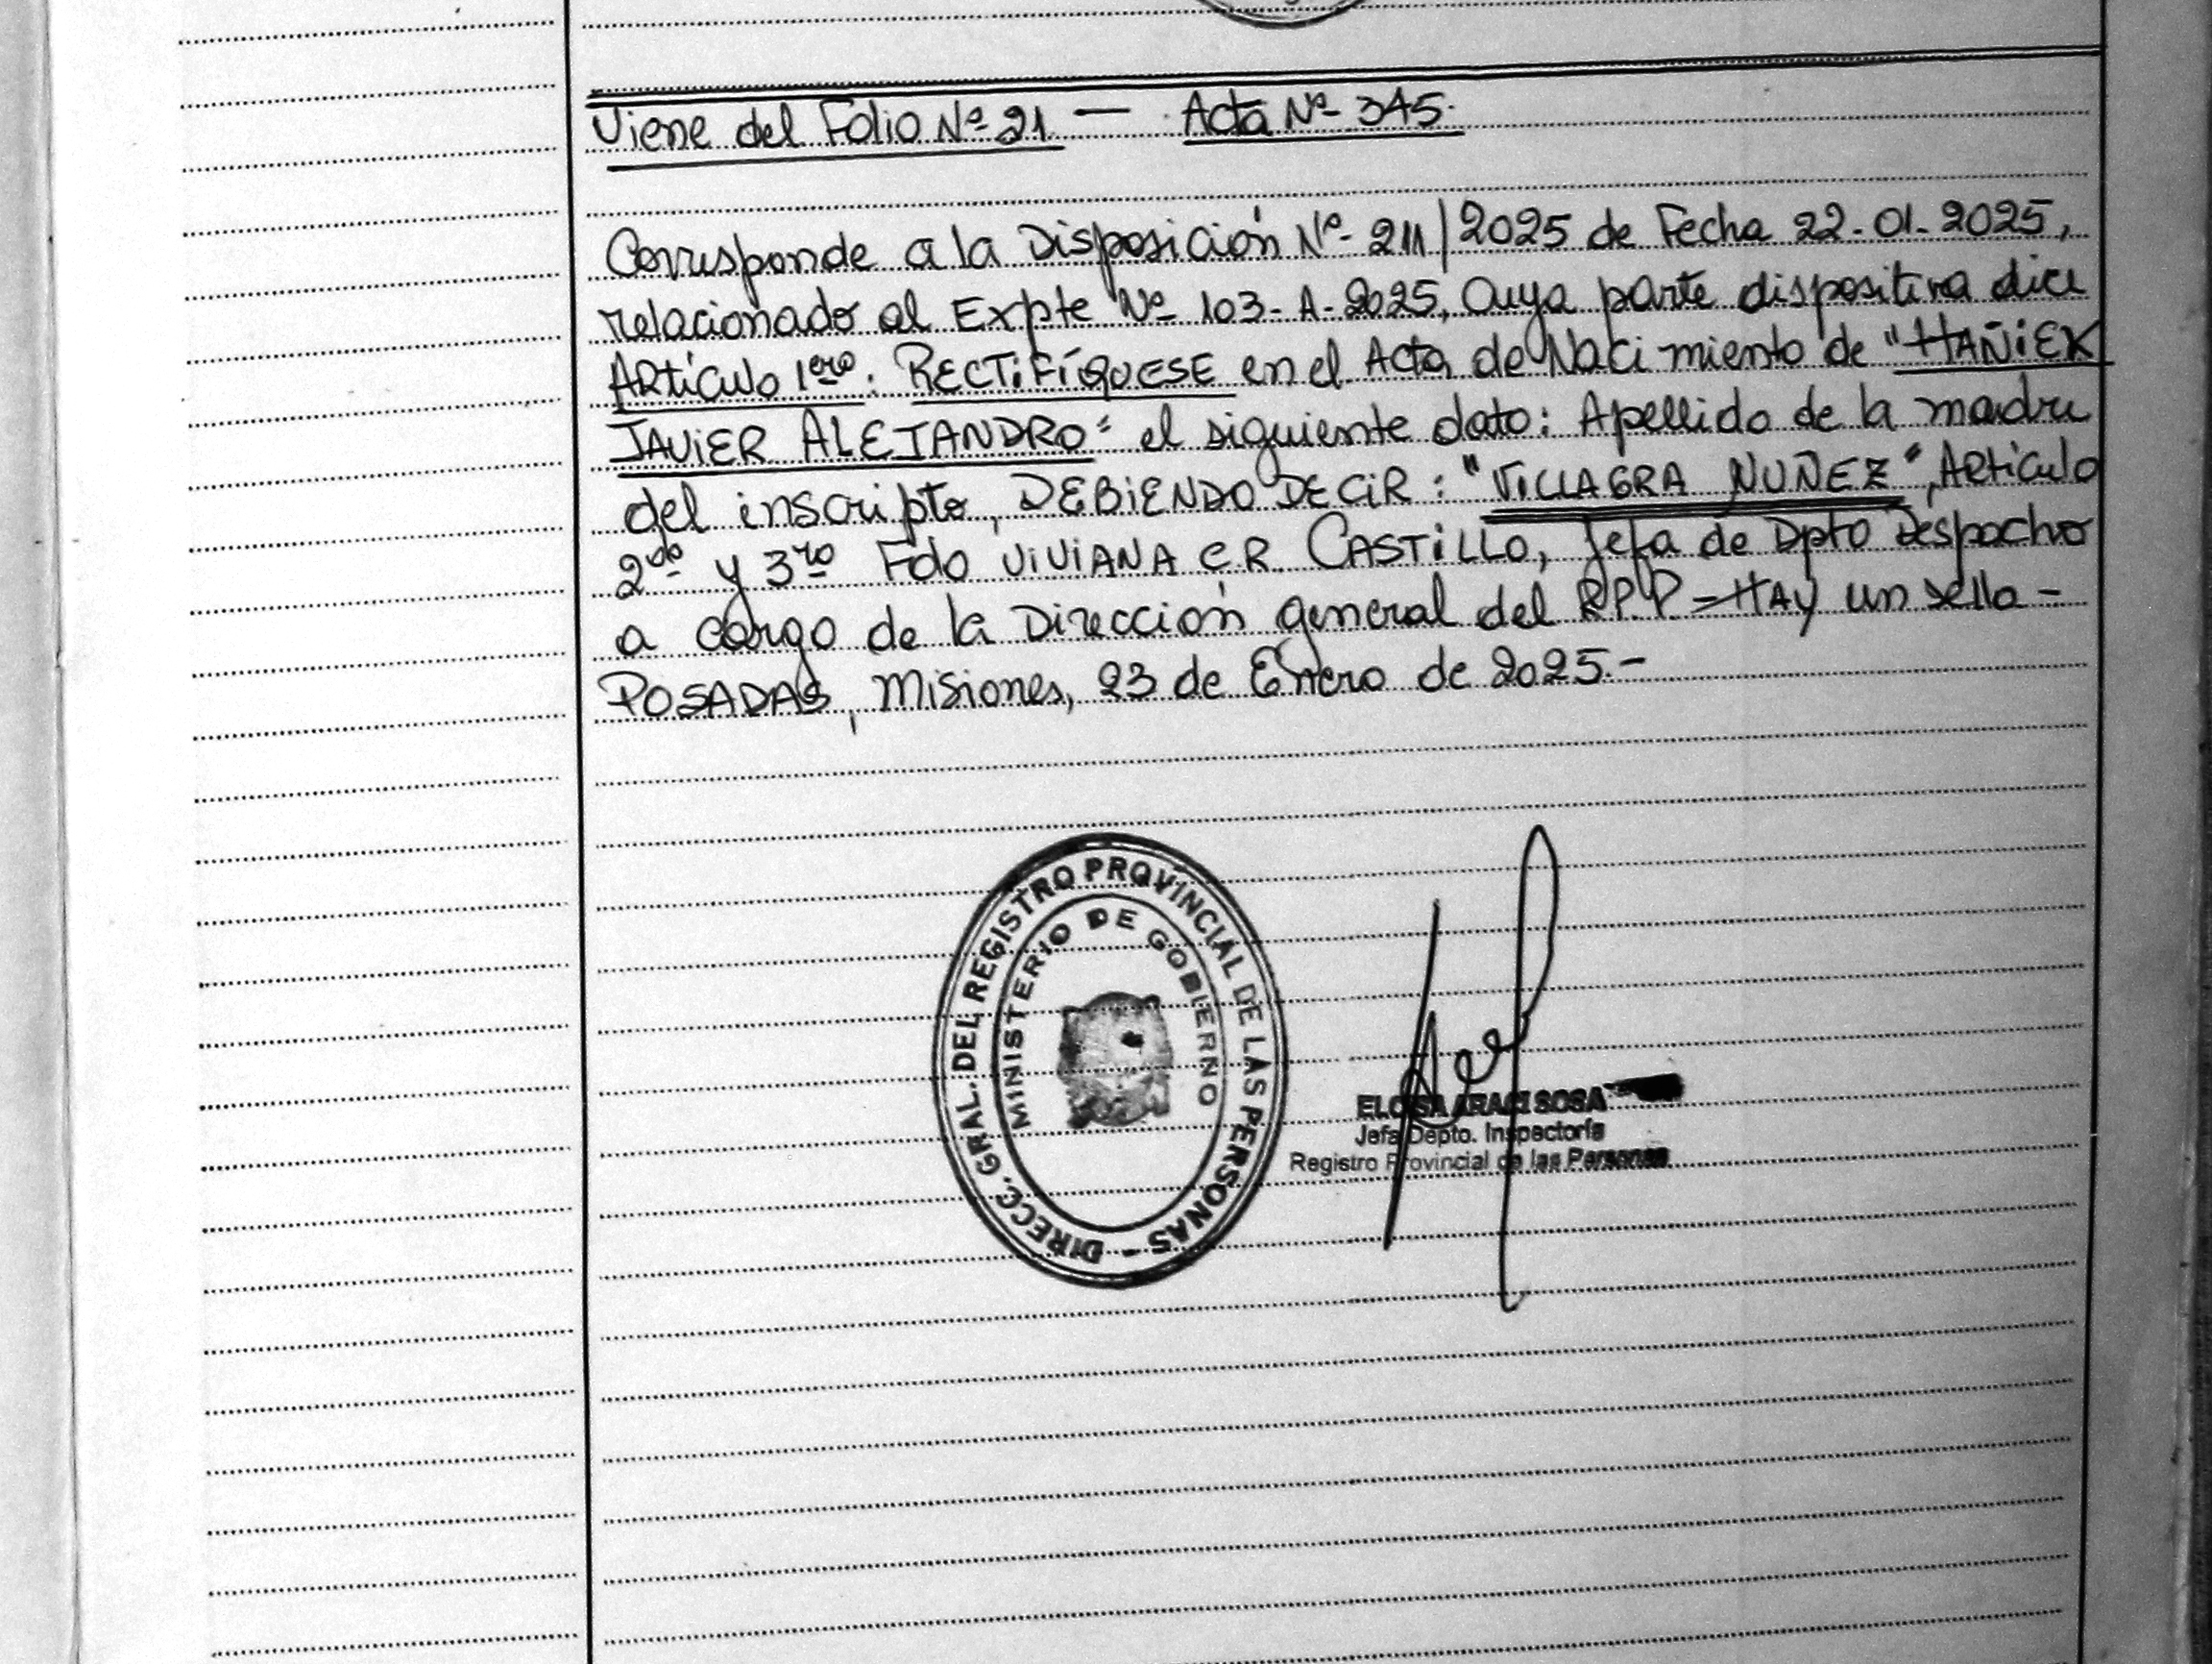 Viene del Folio Nº 21 — Acta Nº 345.
Corresponde a la Disposición Nº 211/2025 de Fecha 22-01-2025,
relacionado al Expte Nº 103-A-2025, Cuya parte dispositiva dice
Artículo 1ero: RECTIFÍQUESE en el Acta de Nacimiento de "HAÑIEK
JAVIER ALEJANDRO" el siguiente dato: Apellido de la madre
del inscripto, DEBIENDO DECIR: "VILLAGRA NUÑEZ", Artículo
2do y 3ro Fdo VIVIANA E.R. CASTILLO, Jefa de Dpto Despacho
a cargo de la Dirección general del R.P.P - HAY un sello -
POSADAS, Misiones, 23 de Enero de 2025.-
DIRECC. GRAL. DEL REGISTRO PROVINCIAL DE LAS PERSONAS -
MINISTERIO DE GOBIERNO
ELOISA ARACI SOSA
Jefa Depto. Inspectoría
Registro Provincial de las Personas